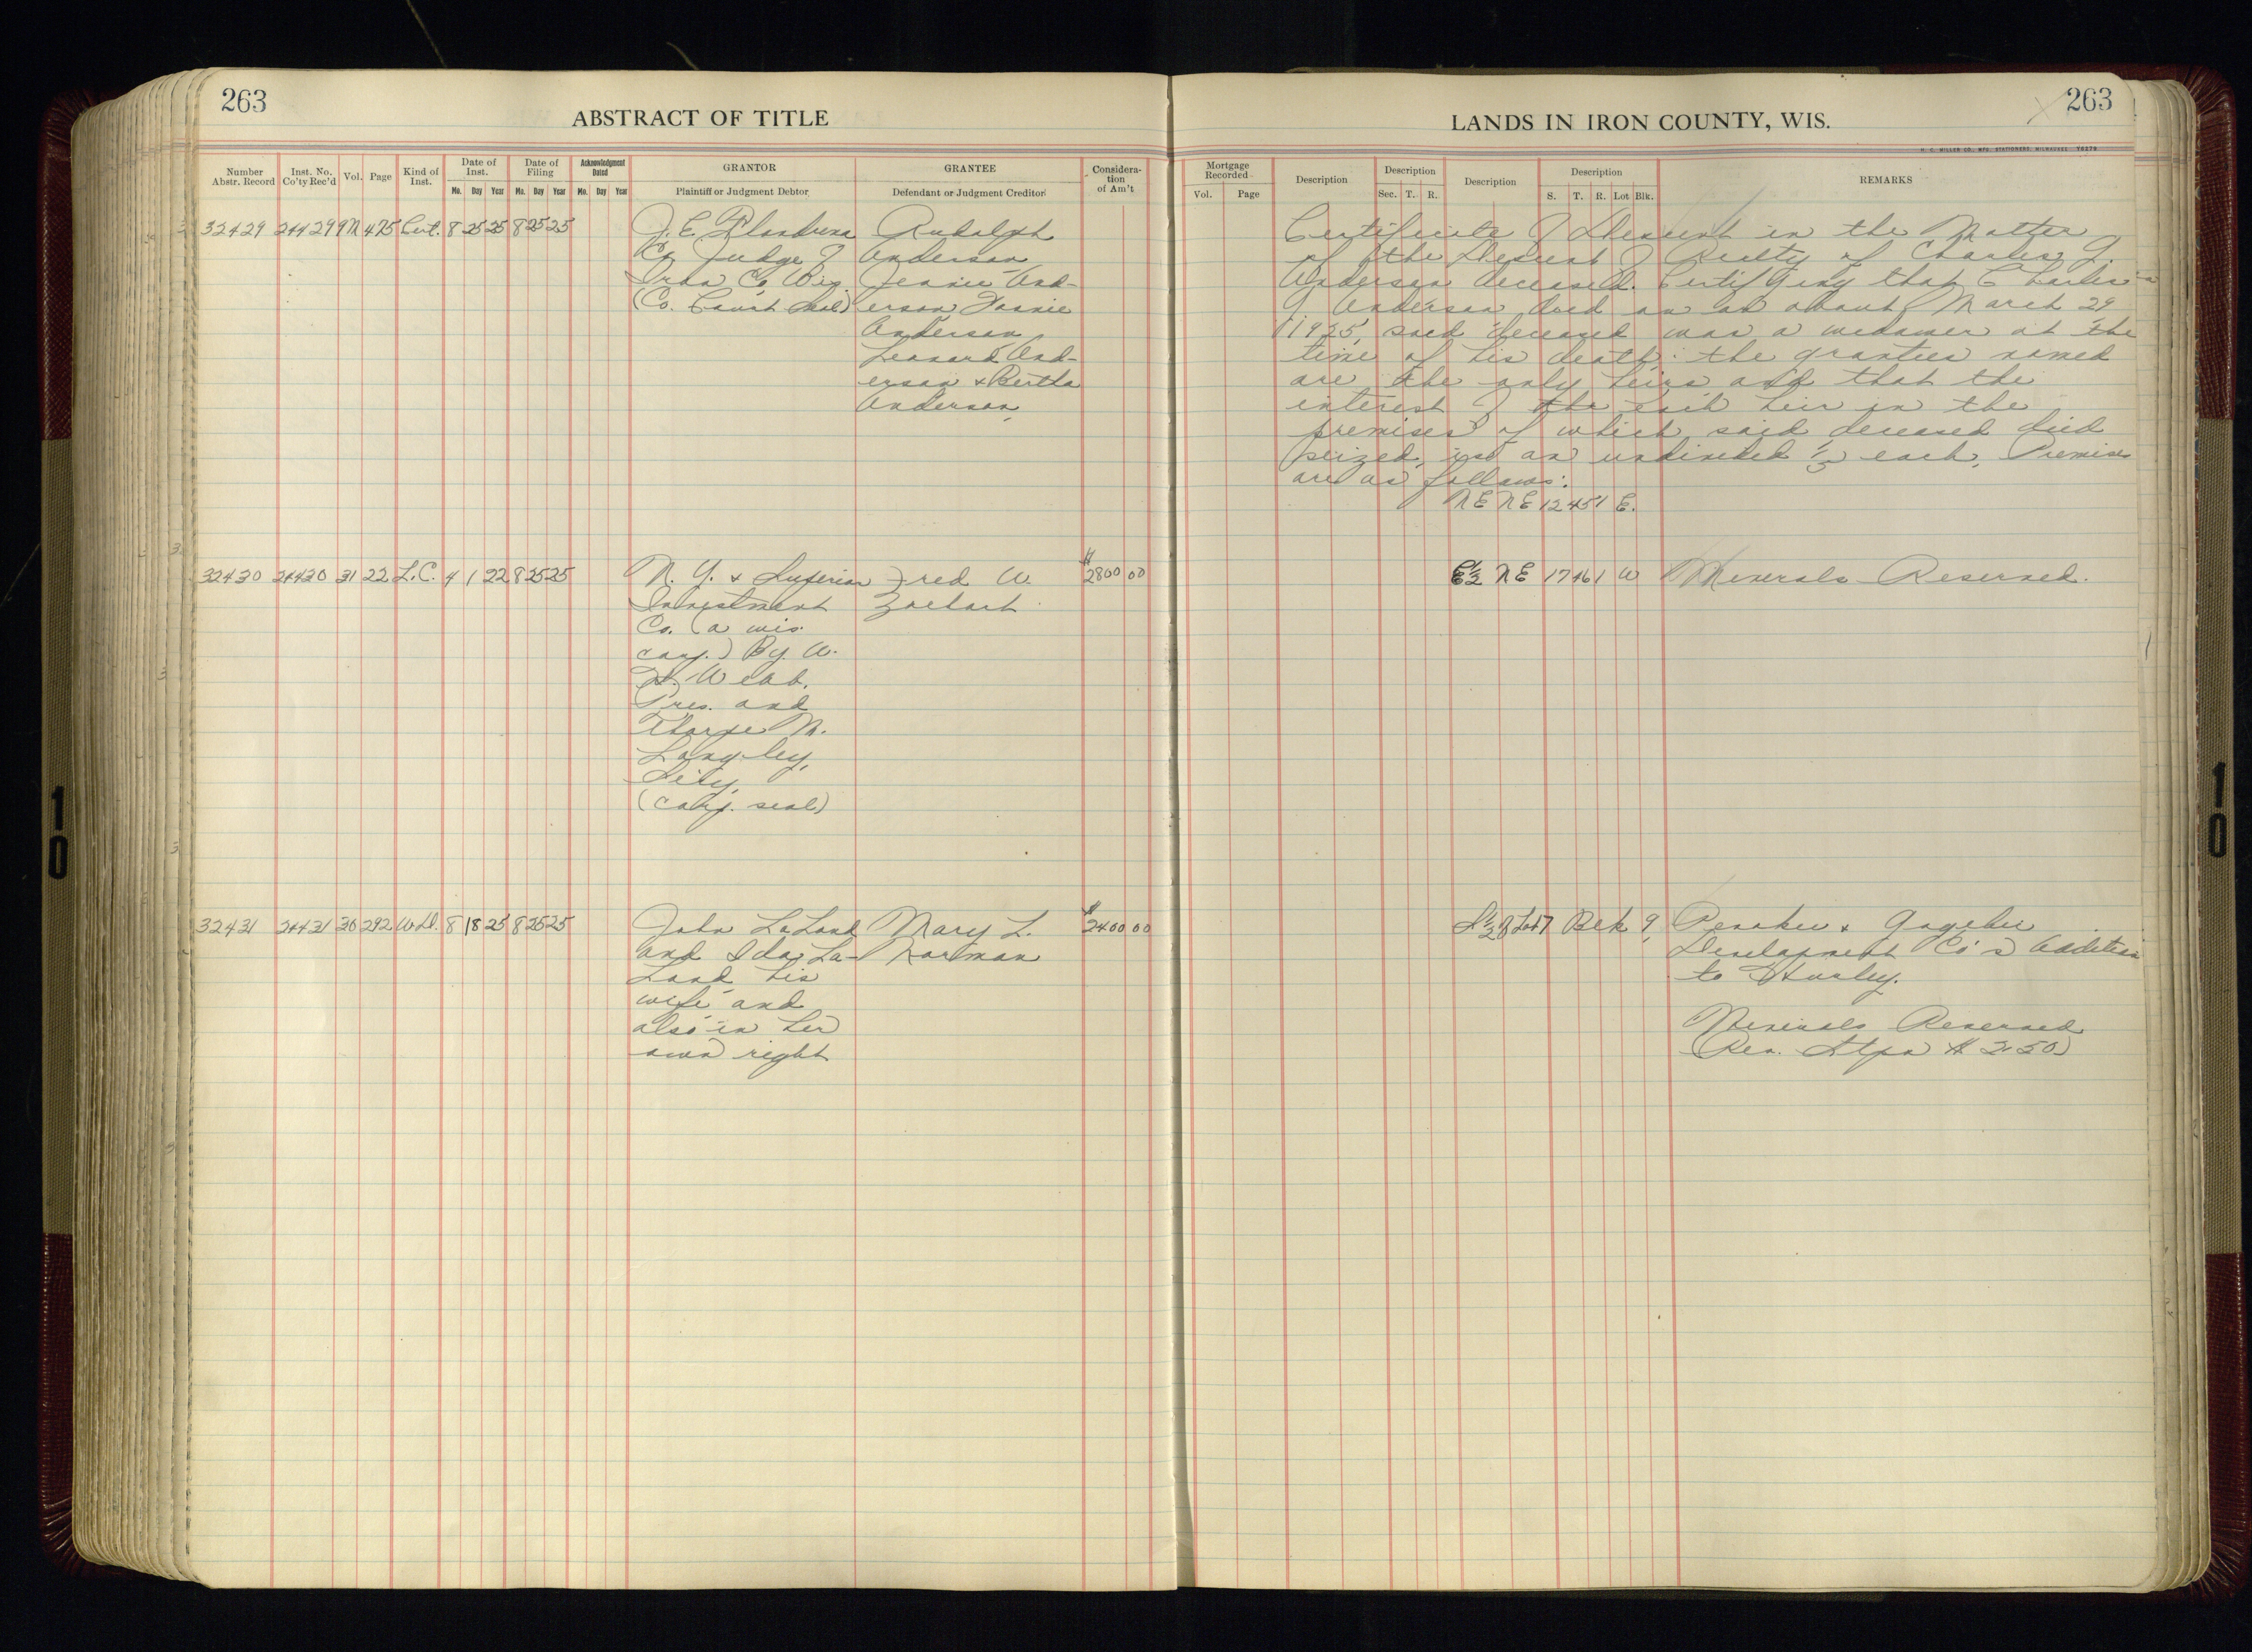 263
ABSTRACT OF TITLE
Number Abstr. Record
Inst. No. Co'ty Rec'd
Vol.
Page
Kind of Inst.
Date of Inst.
Mo. Day Year
Date of Filing
Mo. Day Year
Acknowledgment Dated
Mo. Day Year
GRANTOR
Plaintiff or Judgment Debtor
GRANTEE
Defendant or Judgment Creditor
Consideration of Am't
32429 24429 M 475 Cert. 8 25 25 8 25 25
J. E. Rudolph
Co. Judge of Anderson
Iron Co. Wis. Jennie And-
(Co. Court Seal) erson Fannie
Anderson
Leonard And-
erson & Bertha
Anderson
32430 24430 31 22 L.C. 4 1 22 8 25 25 N. Y. & Superior Fred W. $2800 00
Investment
Co. (a wis.
corp.) By W.
Webb.
Pres. and
Thorpe M.
Langley,
(corp. seal)
32431 24431 30 292 W.D. 8 18 25 8 25 25 John LaLond Mary L. $2400 00
and Ida La- Korman
Lond his
wife and
also in her
own right
263
LANDS IN IRON COUNTY, WIS.
H. C. MILLER CO., MFG. STATIONERS, MILWAUKEE
Mortgage Recorded
Vol. Page
Description
Description
Sec. T. R.
Description
Description
S. T. R. Lot Blk.
REMARKS
Certificate of Descent in the Matter
of the Descent of Realty of Charles J.
Anderson deceased. Certifying that Charles
J. Anderson died on or about March 29
1925, said deceased was a widower at the
time of his death; the grantees named
are the only heirs and that the
interest of the each heir in the
premises of which said deceased died
seized, is an undivided 1/5 each. Premises
are as follows:
NE NE 12 45 1 E.
E½ NE 17 46 1 W Minerals Reserved.
S½ of Lot 7 Blk 9, Penokee & Gogebic
Development Co's Addition
to Hurley.
Minerals Reserved
Rev. Stps $2.50
10
10